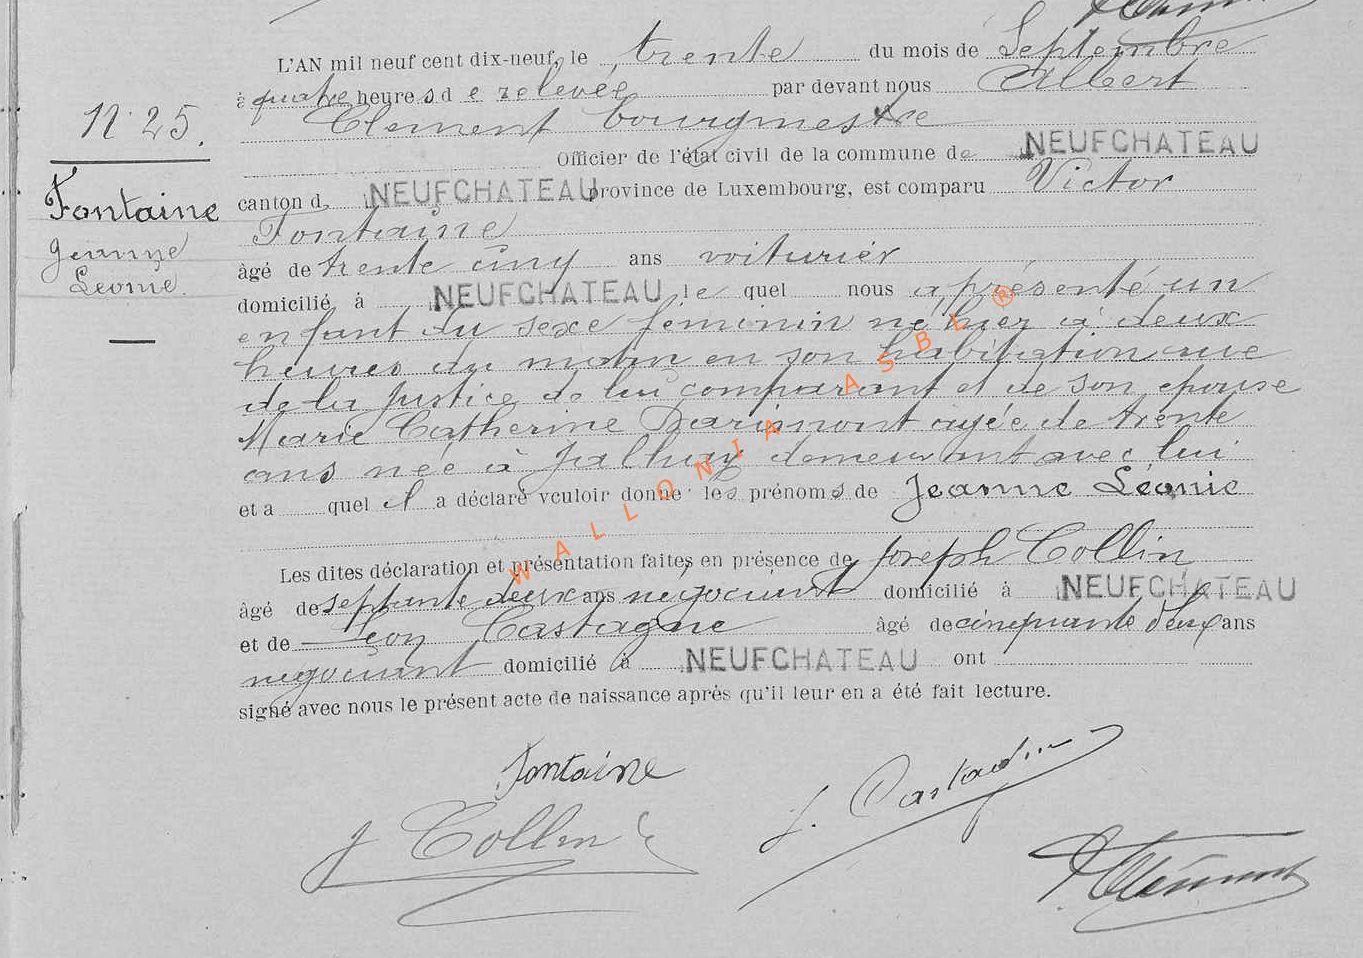 L'AN mil neuf cent dix-neuf, le trente du mois de Septembre
à quatre heures de relevée par devant nous Albert
N° 25.
Clement bourgmestre
Officier de l'état civil de la commune de NEUFCHATEAU
canton d NEUFCHATEAU province de Luxembourg, est comparu Victor
Fontaine
Jeanne
Léonie
Fontaine
âgé de trente cinq ans voiturier
domicilié à NEUFCHATEAU le quel nous a présenté un
enfant du sexe féminin né hier à deux
heures du matin en son habitation rue
de la Justice de lui comparant et de son épouse
Marie Catherine Darimont agée de trente
ans née à Jalhay demeurant avec lui
et a quel il a déclaré vouloir donner les prénoms de Jeanne Léonie
Les dites déclaration et présentation faites en présence de Joseph Collin
âgé de septante deux ans négociant domicilié à NEUFCHATEAU
et de Léon Castagne âgé de cinquante deux ans
négociant domicilié à NEUFCHATEAU ont
signé avec nous le présent acte de naissance après qu'il leur en a été fait lecture.
Fontaine
J Collin
L. Castagne
A Clément
WALLONIA ASBL ®